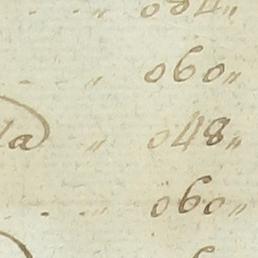 . . „ 084„
. „ 060„
la „ 048„
. . „ 060„